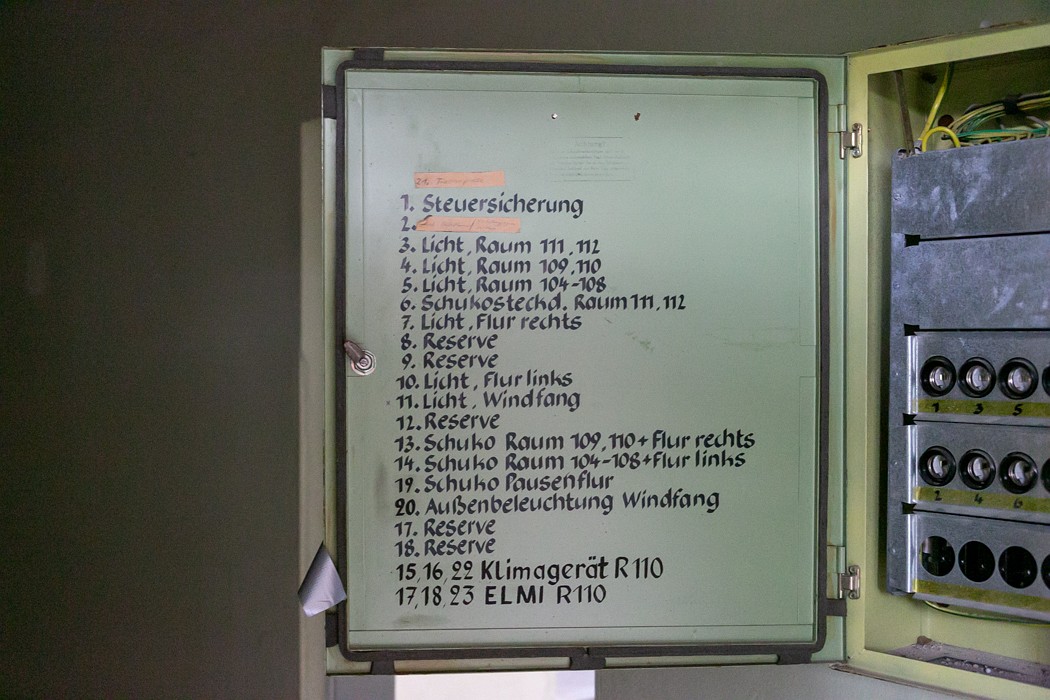 Achtung!
1. Steuersicherung
2.
3. Licht, Raum 111, 112
4. Licht, Raum 109, 110
5. Licht, Raum 104-108
6. Schukosteckd. Raum 111, 112
7. Licht, Flur rechts
8. Reserve
9. Reserve
10. Licht, Flur links
11. Licht, Windfang
12. Reserve
13. Schuko Raum 109, 110 + Flur rechts
14. Schuko Raum 104-108 + Flur links
19. Schuko Pausenflur
20. Außenbeleuchtung Windfang
17. Reserve
18. Reserve
15, 16, 22 Klimagerät R 110
17, 18, 23 ELMI R 110
1 3 5
2 4 6